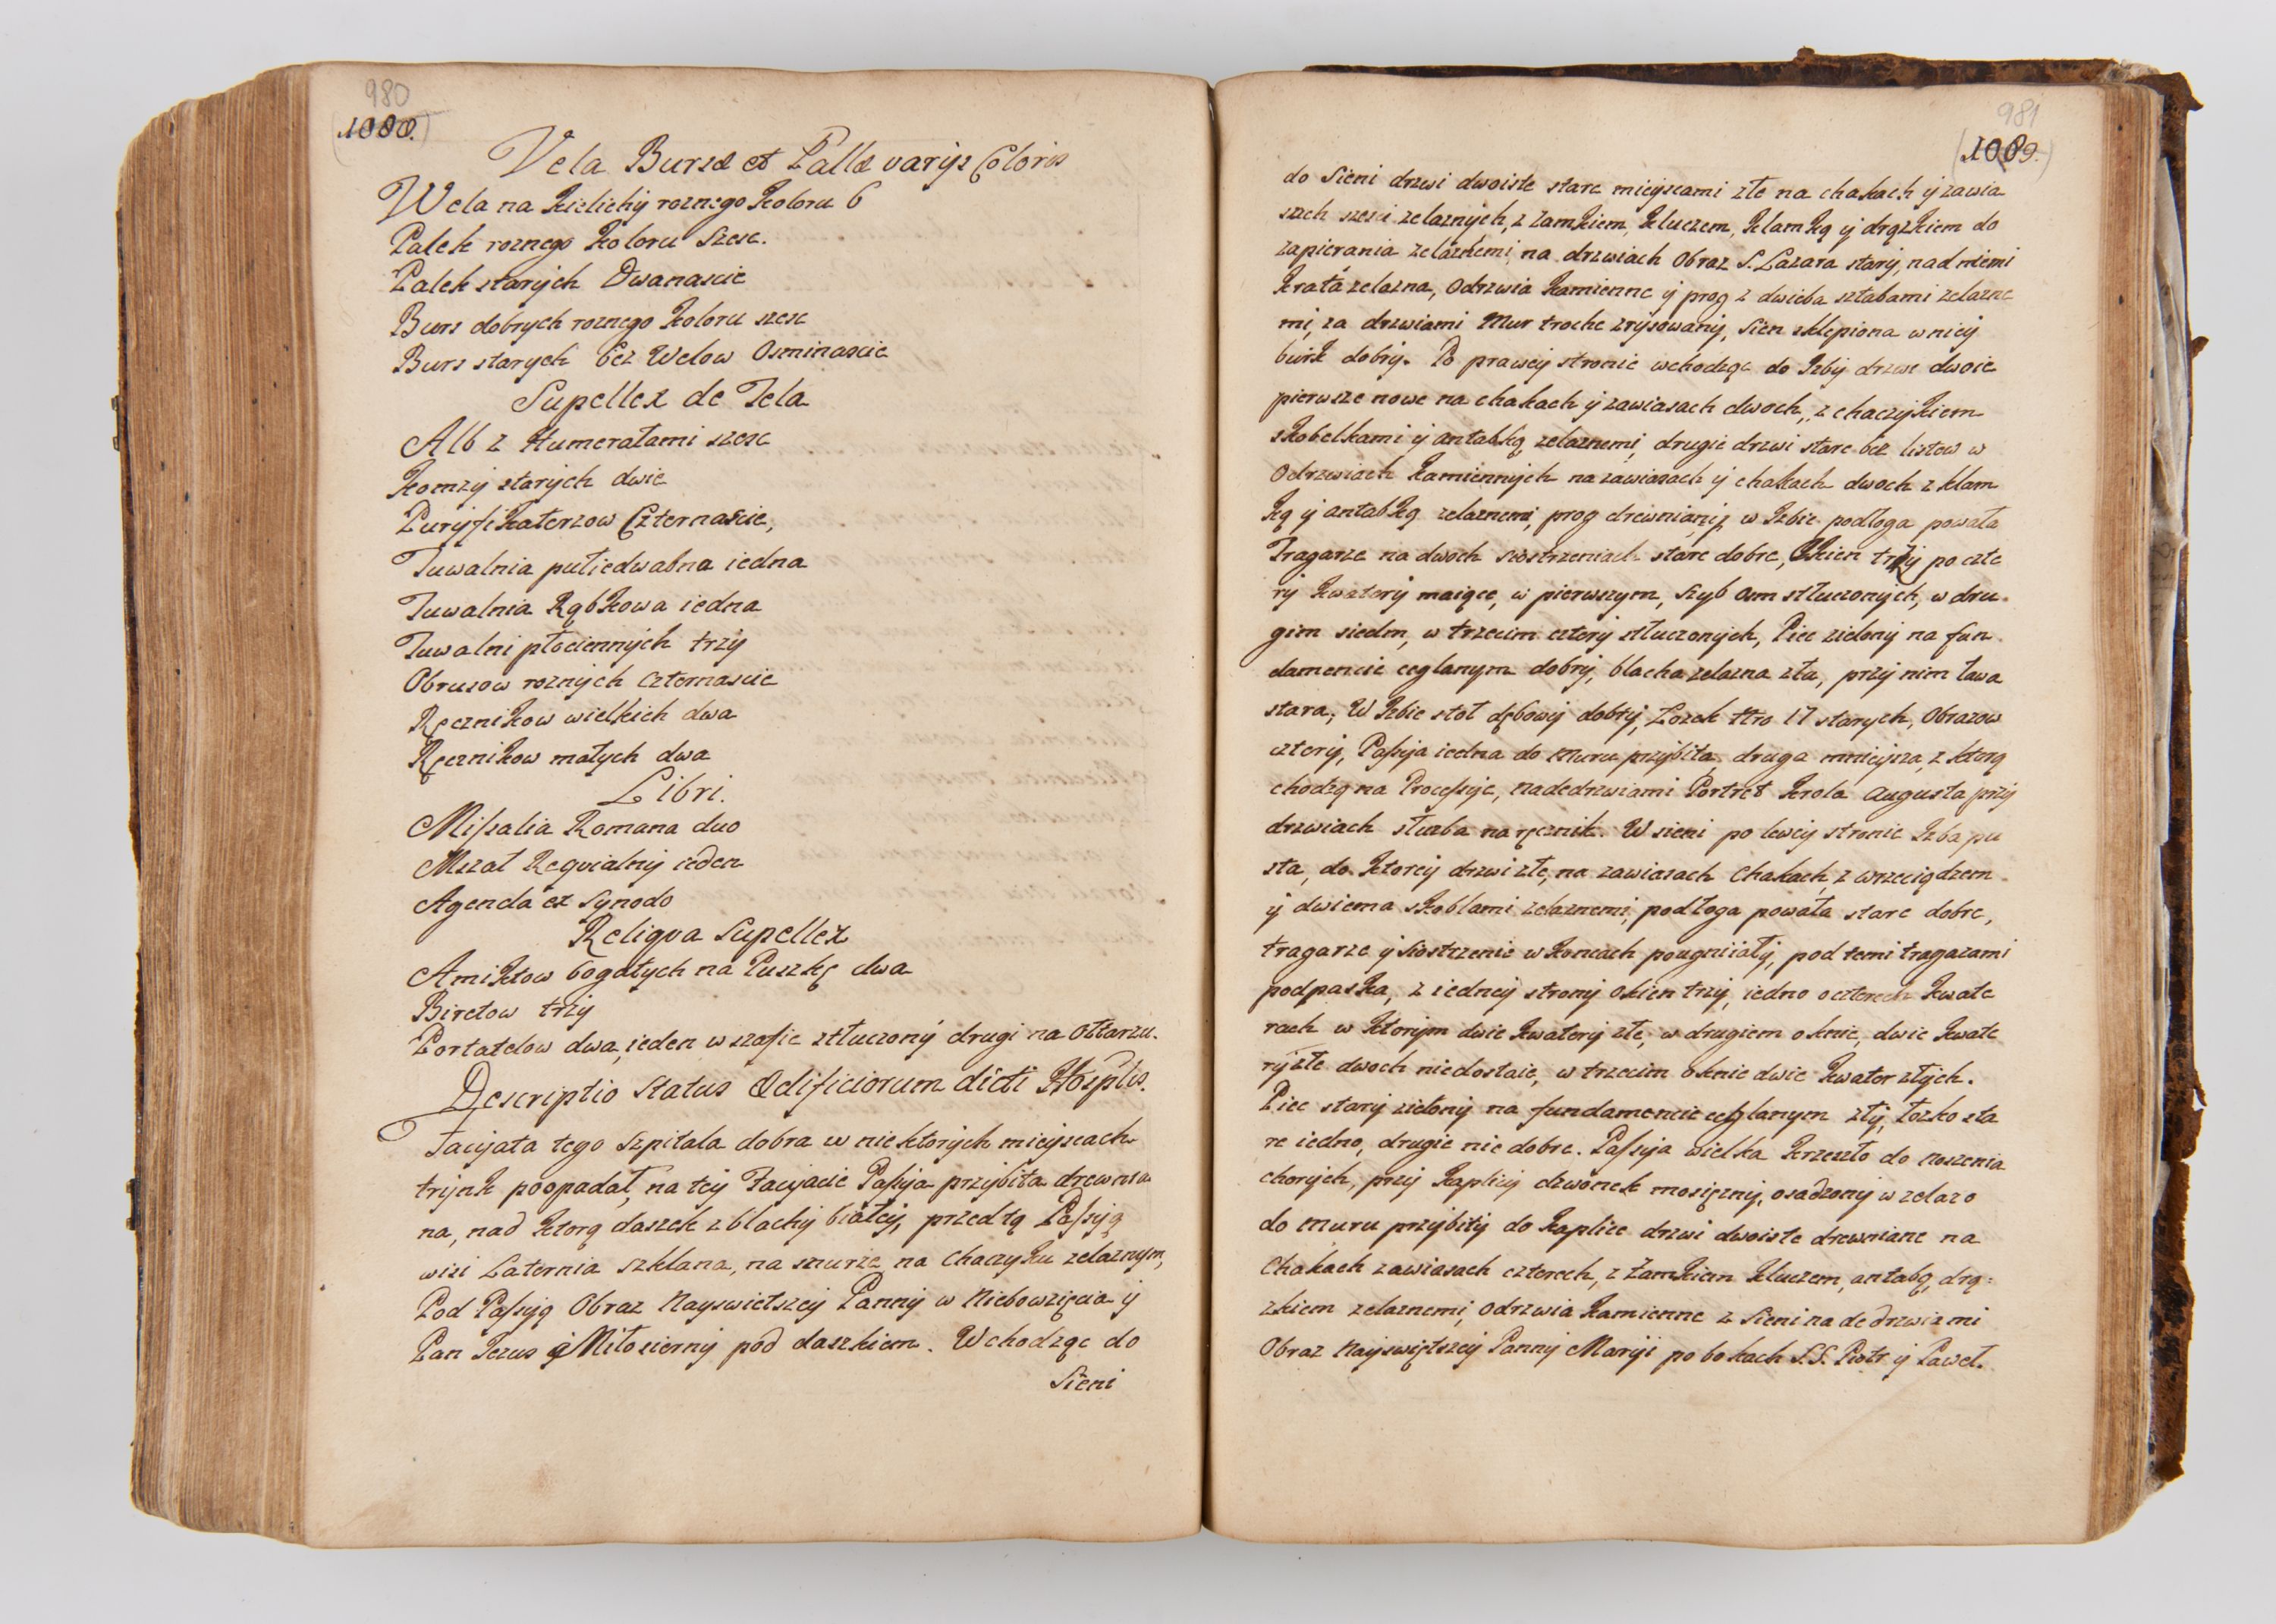 980
1080.
Vela Bursæ et Pallæ varijs Coloris
Wela na Kielichÿ roznego Koloru 6
Palek roznego Koloru Szesc.
Palek starÿch Dwanascie
Burs dobrÿch roznego Koloru szesc
Burs starych bez Welow Osminascie
Supellex de Tela
Alb z Humerałami szesc
Komzÿ starÿch dwie
Purÿfikaterzow Czternascie,
Tuwalnia pułiedwabna iedna
Tuwalnia Rąbkowa iedna
Tuwalni płociennÿch trzÿ
Obrusow roznÿch czternascie
Ręcznikow wielkich dwa
Ręcznikow małych dwa
Libri.
Missalia Romana duo
Mszał Reqvialnÿ ieden
Agenda ex Synodo
Reliqva Supellex
Amiktow bogatych na Puszkę dwa
Biretow trzÿ
Portatelow dwa, ieden w szafie ztłuczonÿ drugi na Ołtarzu.
Descriptio Status Ædificiorum dicti Hosptlis.
Facÿata tego Szpitala dobra w niektorÿch mieÿscach
trÿnk poopadał, na teÿ Facÿacie Passÿa przÿbita drewnia
na, nad Ktorą daszek z blachÿ białeÿ, przed tą Passÿą
wisi Laternia szklana, na sznurze na Chaczÿku zelaznym,
Pod Passÿą Obraz Nayswietszeÿ Pannÿ w Niebowzięcia ÿ
Pan Jezus ÿ Miłosiernÿ pod daszkiem. Wchodząc do
Sieni
981
1089.
do Sieni drzwi dwoiste stare mieÿscami złe na chakach ÿ zawia
sach szesci zelaznÿch, z zamkiem, Kluczem, Klamką ÿ drązkiem do
zapierania zelaznemi, na drzwiach Obraz S. Lazara starÿ, nad niemi
Krata zelazna, Odrzwia Kamienne ÿ prog z dwieba sztabami zelazne
mi, za drzwiami Mur troche zrÿsowanÿ, Sien sklepiona w nieÿ
burk dobrÿ. Po praweÿ stronie wchodząc do Izbÿ drzwi dwoie
pierwsze nowe na chakach ÿ zawiasach dwoch, z chaczÿkiem
skobelkami ÿ antabką zelaznemi, drugie drzwi stare bez listew w
Odrzwiach Kamiennÿch na zawiasach ÿ chakach dwoch z klam
ką ÿ antabką zelaznemi, prog drewnianÿ, w Izbie podłoga powała
Tragarze na dwoch siostrzeniach stare dobre, Okien trzÿ po czte
rÿ Kwaterÿ maiące, w pierwszym, Szyb osm stłuczonÿch, w dru-
gim siedm, w trzecim czterÿ stłuczonÿch, Piec zielonÿ na fun
damencie ceglanym dobrÿ, blacha zelazna zła, przÿ nim ława
stara, W Izbie stoł dębowÿ dobrÿ, Łozek Nro 17 starych, Obrazow
czterÿ, Passÿa iedna do Muru przÿbita, druga mnieÿsza, z ktorą
chodzą na Processÿe, nadedrzwiami Portret Krola Augusta przÿ
drzwiach słuzba na ręcznik. W sieni po leweÿ stronie Izba pu
sta, do Ktoreÿ drzwi złe, na zawiasach Chakach, z wrzeciądzem
ÿ dwiema skoblami zelaznemi, podłoga powała stare dobre,
tragarze ÿ siostrzenie w Koncach pougniiałÿ, pod temi tragarami
podpaska, z iedneÿ stronÿ okien trzÿ, iedno o czterech Kwate
rach w Ktorÿm dwie Kwaterÿ złe, w drugiem oknie, dwie Kwate
rÿ złe dwoch niedostaie, w trzecim oknie dwie Kwater złÿch.
Piec starÿ zielonÿ na fundamencie ceglanym złÿ, łozko sta
re iedno, drugie nie dobre. Passÿa wielka Krzesło do noszenia
chorÿch, przÿ Kaplicÿ dzwonek mosięznÿ, osadzonÿ w zelazo
do Muru przÿbitÿ do Kaplice drzwi dwoiste drewniane na
Chakach zawiasach czterech, z Zamkiem Kluczem, antabą, drą=
zkiem zelaznemi, Odrzwia Kamienne z Sieni nadedrzwiami
Obraz Nayswiętszeÿ Pannÿ Marÿi po bokach S.S. Piotr ÿ Paweł.